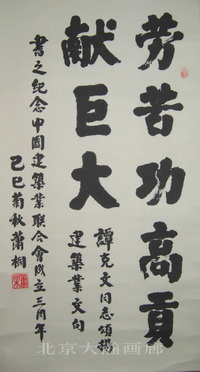 劳苦功高貢
献巨大
譚克文同志頌揚
建築業文句
書之紀念中國建築業聯合會成立三周年
己巳菊秋蕭桐
北京大瀚画廊